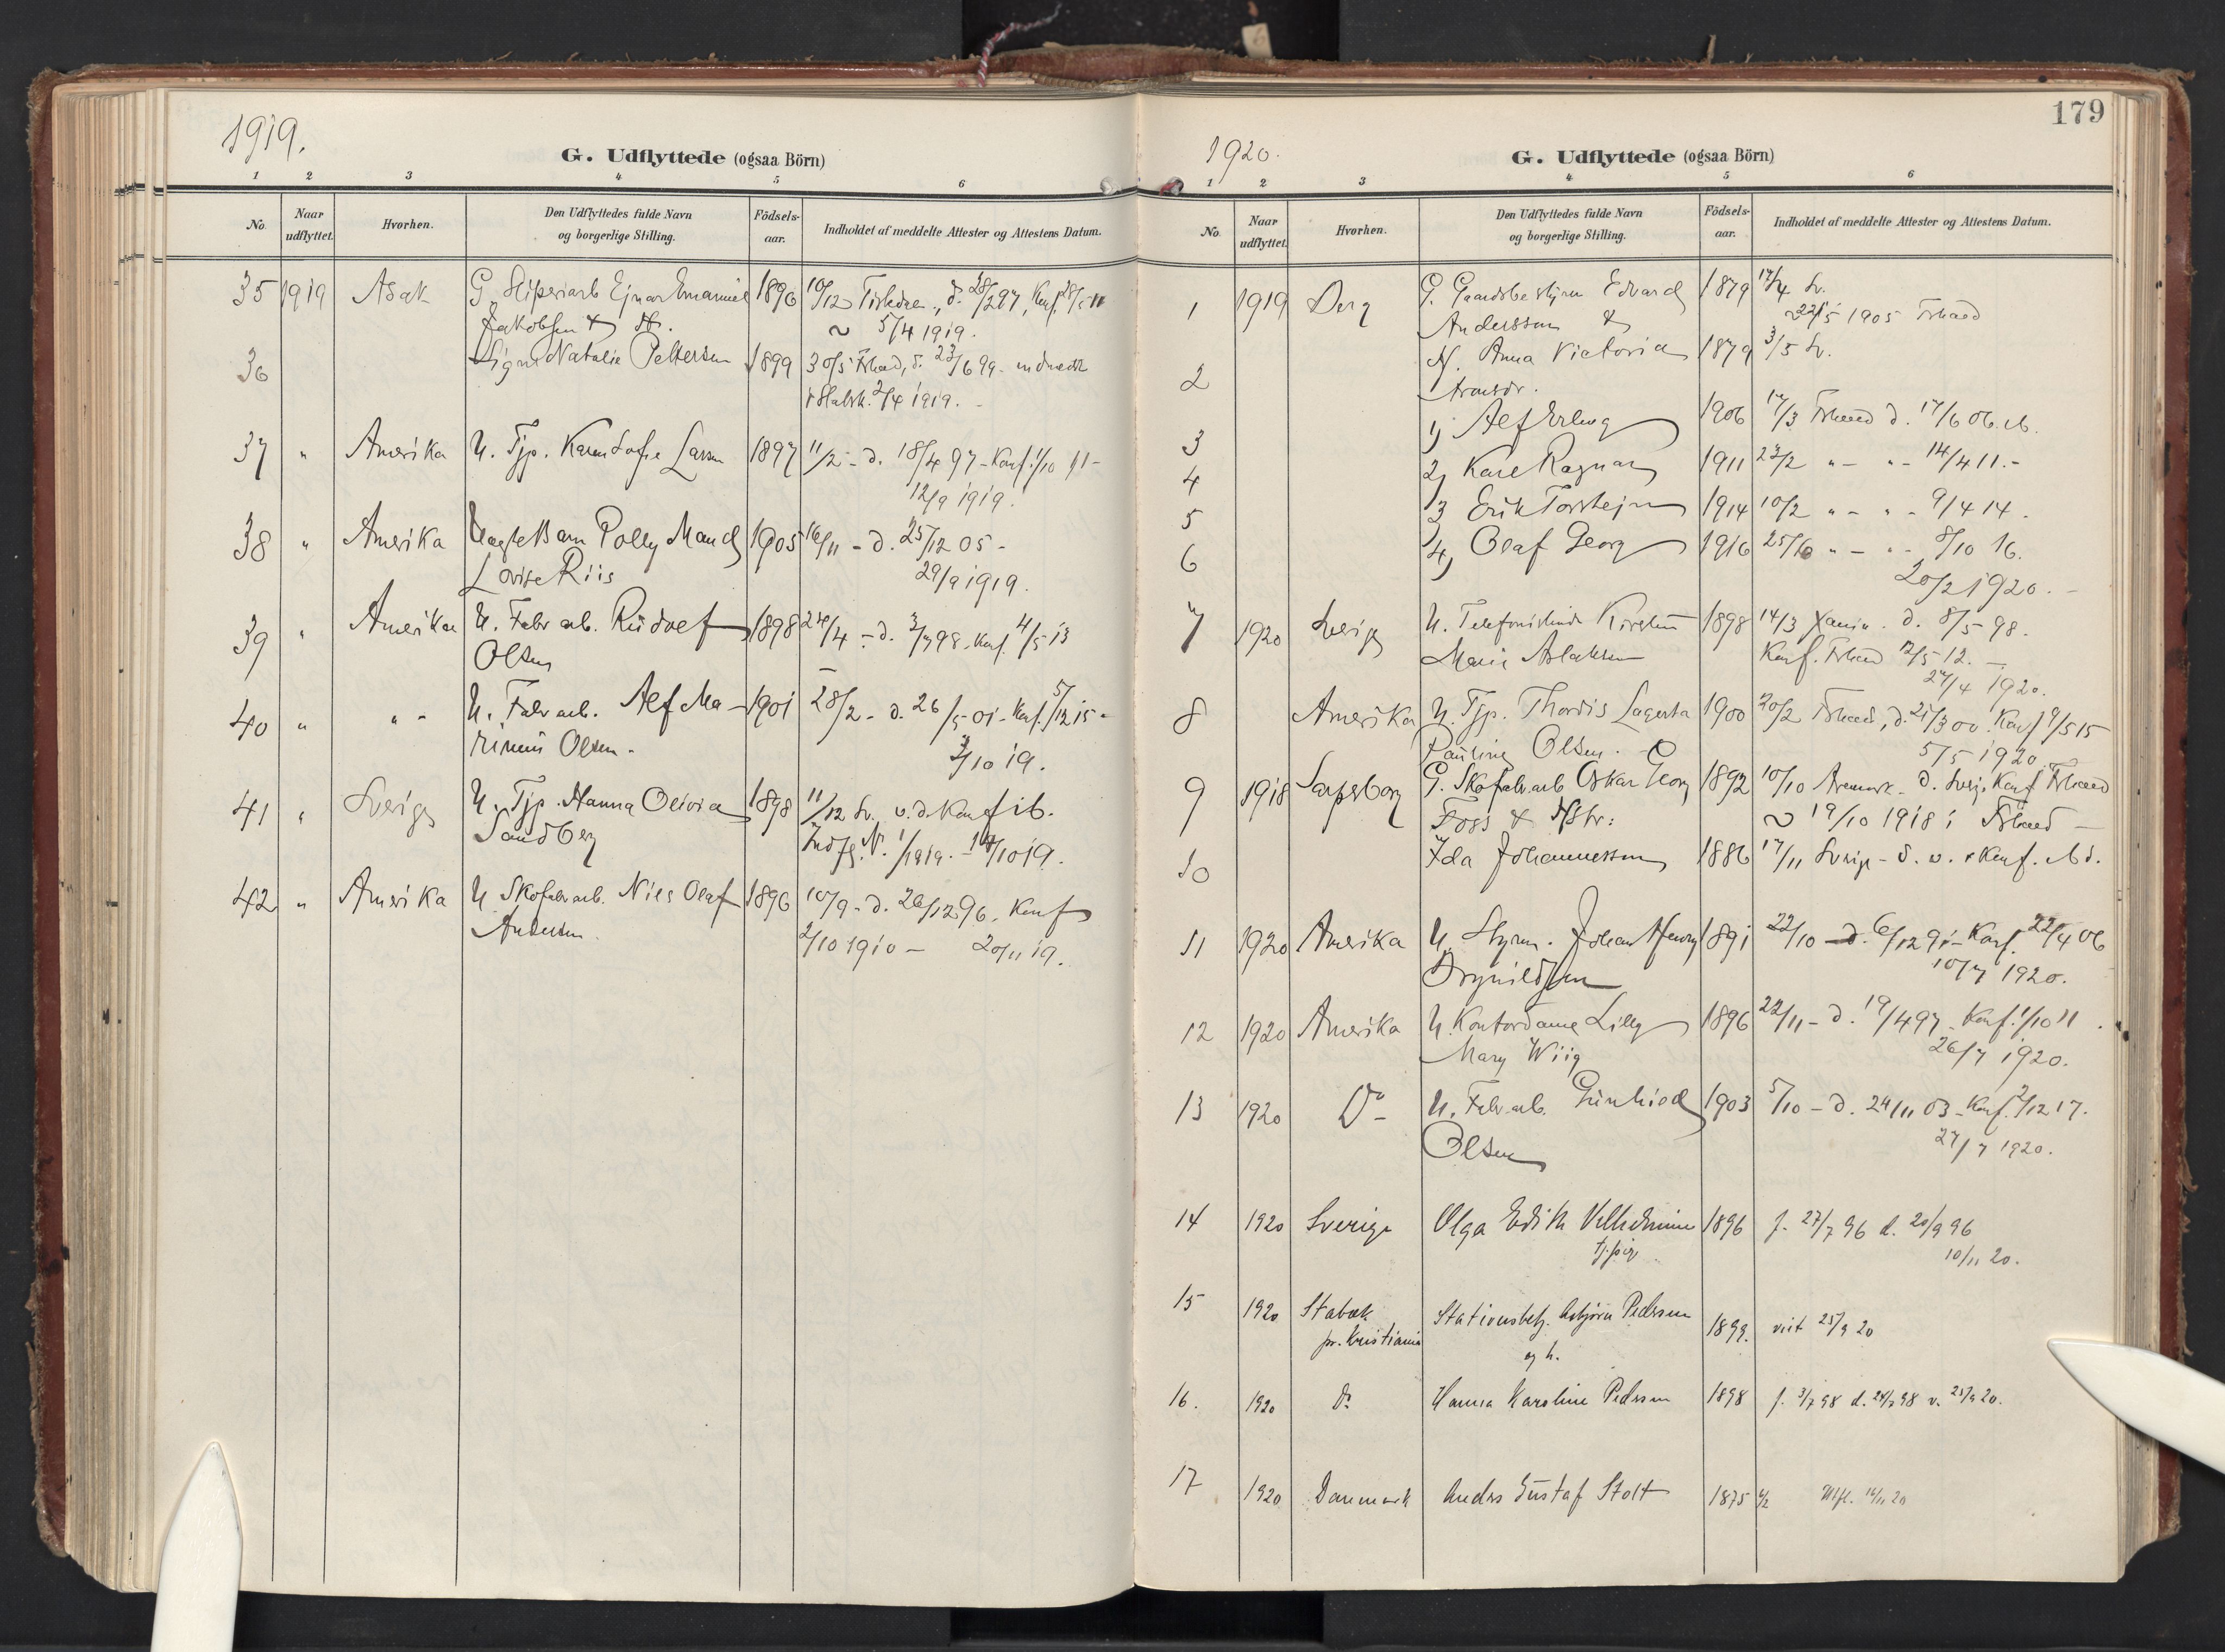 1919.
G. Udflyttede (ogsaa Börn)
1 2 3 4 5 6
No. Naar udflyttet. Hvorhen. Den Udflyttedes fulde Navn og borgerlige Stilling. Födsels-aar. Indholdet af meddelte Attester og Attestens Datum.
35 1919 Asak G. Sliperiarb Ejnar Emanuel 1896 10/12 Tistedalen, d. 28/2 97, Konf.
Jakobsen & H. 5/4 1919.
36 Signe Natalie Pettersen 1899 30/5 Fshald, d. 23/6 99.
2/4 1919.
37 " Amerika U. Tjp. Karen Sofie Larsen 1897 11/2 - d. 18/4 97 - Konf. 1/10 11 -
12/9 1919.
38 " Amerika Uægte Barn Polly Maud 1905 16/11 - d. 25/12 05 -
Lovise Riis 29/9 1919.
39 " Amerika U. Fabr arb. Rudolf 1898 24/4 - d. 3/7 98. Konf. 4/5 13
Olsen
40 " " - U. Fabr arb. Alf Ma- 1901 28/2 - d. 26/5 01 - Konf. 5/12 15 -
rinius Olsen. 3/10 19.
41 " Sverige U. Tjp. Hanna Olivia 1898 11/12 Sv. v. d. Konf ib.
Sandberg Indfl. N. 1/1919. - 14/10 19.
42 " Amerika U Skofabr arb. Nils Olaf 1896 10/9 - d. 26/12 96. Konf
Andersen. 2/10 1910 - 20/11 19.
179
1920.
G. Udflyttede (ogsaa Börn)
1 2 3 4 5 6
No. Naar udflyttet. Hvorhen. Den Udflyttedes fulde Navn og borgerlige Stilling. Födsels-aar. Indholdet af meddelte Attester og Attestens Datum.
1 1919 Berg G. Gaardsbestyrer Edvard 1879 17/4 Sv.
Andersson & 22/5 1905 Fshald
2 H. Anna Victoria 1879 3/5 Sv.
Aronsdr.
3 1) Alf Erling 1906 17/3 Fshald d. 17/6 06. ib.
4 2) Kare Ragnar 1911 23/2 " - " - 14/4 11. -
5 3 Erik Torstejn 1914 10/2 " - " - 9/4 14.
6 4) Olaf Georg 1916 25/6 " - " - 8/10 16.
20/2 1920. -
7 1920 Sverige U. Telefonistinde Kirstin 1898 14/3 d. 8/5 98.
Marie Aslaksen Konf. Fshald 12/5 12. -
27/4 1920.
8 Amerika U. Tjp. Thordis Lagerta 1900 20/2 Fshald, d. 25/3 00. Konf 9/5 15
Pauline Olsen. 5/5 1920.
9 1918 Sarpsborg G. Skofabr arb Oskar Georg 1892 10/10 Aremark. d. Sverig. Konf Fshald
Foss & Hstr: 19/10 1918 i Fshald -
10 Ida Johannessen 1886 17/11 Sverige - d. v. & Konf. ibd.
11 1920 Amerika U. Styrm. Johan Henry 1891 22/10 - d. 6/12 91 - Konf. 22/4 06
Brynildsen 10/7 1920.
12 1920 Amerika U. Kontordame Lilly 1896 22/11 - d. 19/4 97 - Konf. 1/10 11.
Mary Wiig 26/7 1920.
13 1920 Do - U. Fabr arb. Gunhild 1903 5/10 - d. 24/11 03 - Konf. 2/12 17.
Olsen 27/7 1920.
14 1920 Sverige Olga Edith Vilhelmine 1896 f. 27/7 96 d. 20/9 96
tj.pig 10/11 20.
15 1920 Stabæk Stationsbetj. Asbjørn Pedersen 1899. viet 25/9 20
pr. Kristiania og h.
16. 1920 Do Hanna Karoline Pedersen 1898 f. 3/7 98 d. 24/7 98 v. 25/9 20.
17 1920 Danmark Anders Gustaf Stolt 1875 4/2 Utfl. 14/11 20